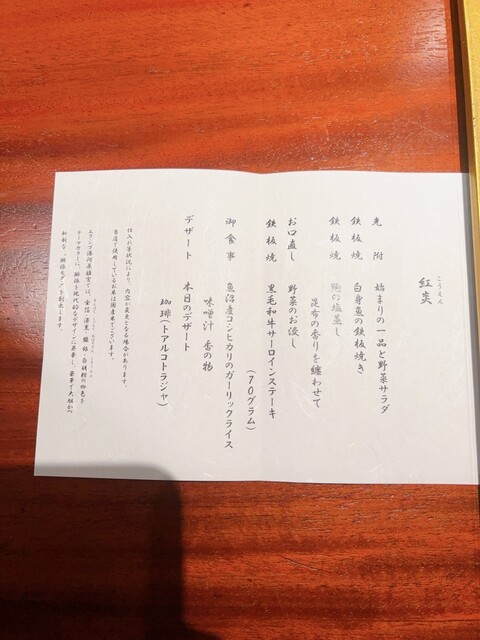 こうえん
紅炎
先附 始まりの一品と野菜サラダ
鉄板焼 白身魚の鉄板焼き
鉄板焼 鮑の塩蒸し
昆布の香りを纏わせて
お口直し 野菜のお浸し
鉄板焼 黒毛和牛サーロインステーキ
(70グラム)
御食事 魚沼産コシヒカリのガーリックライス
味噌汁 香の物
デザート 本日のデザート
珈琲(トアルコトラジャ)
仕入れ等状況により、内容が変更となる場合があります。
当店で使用しているお米は国産米でございます。